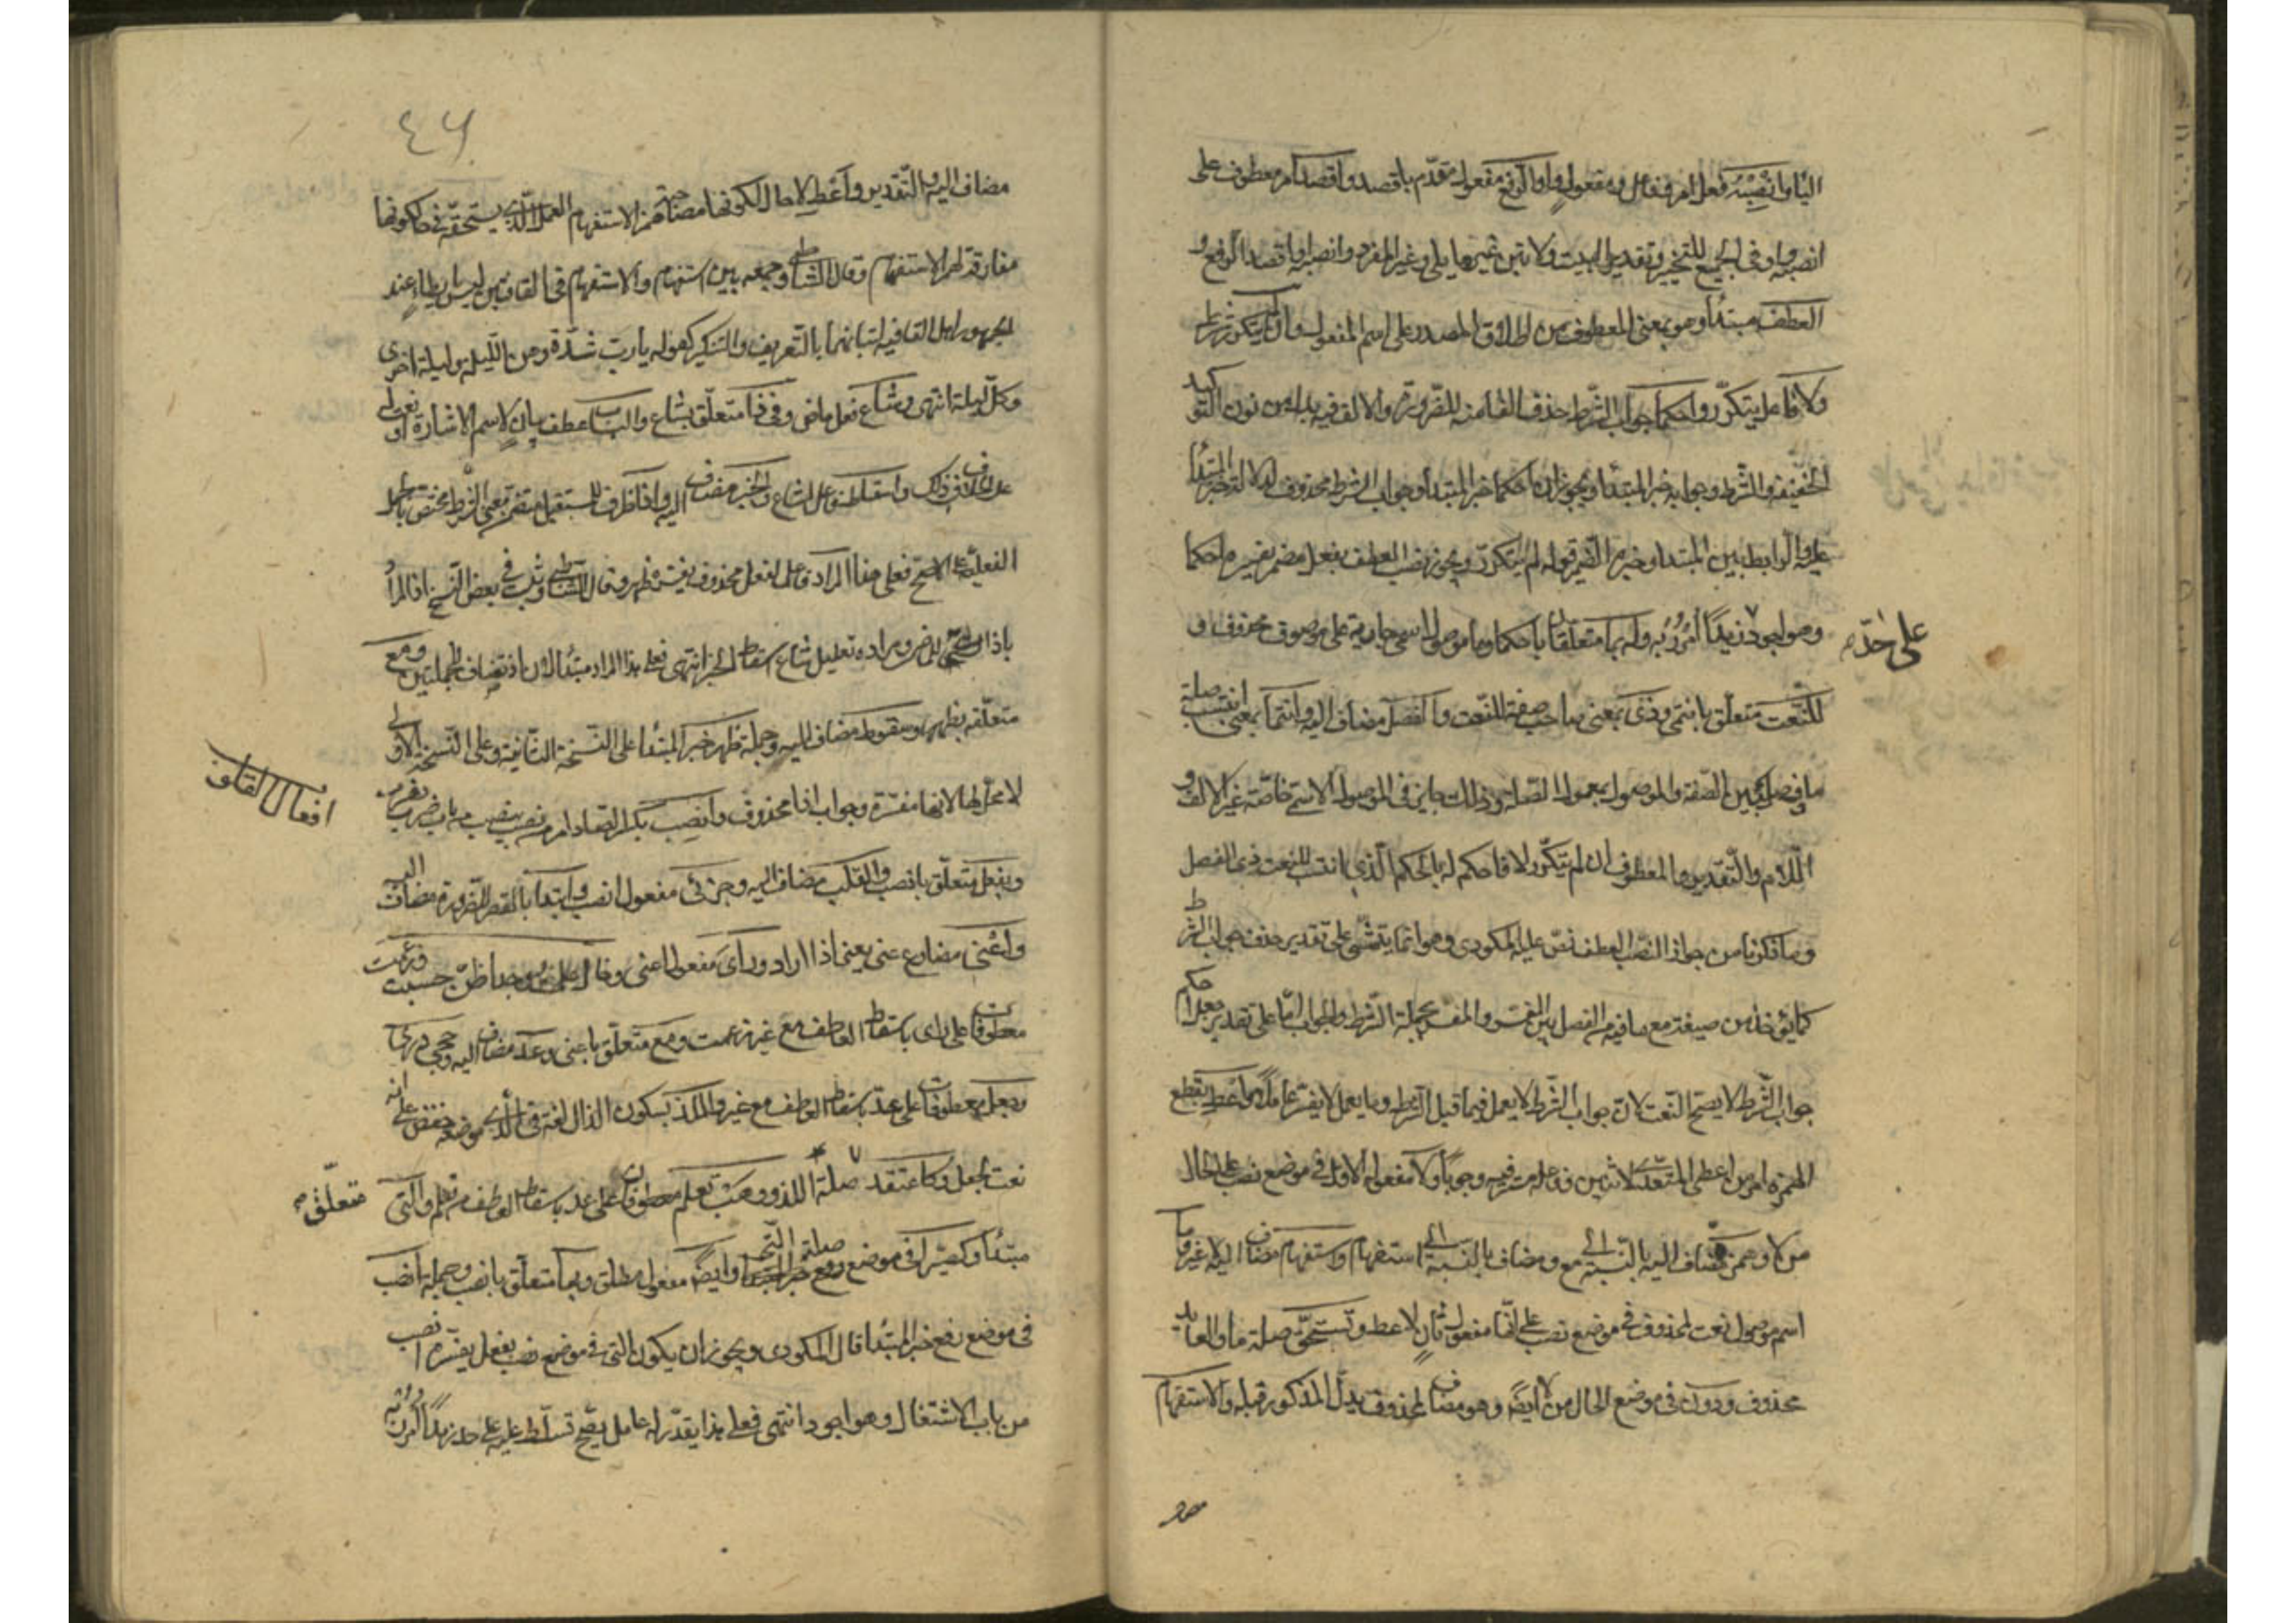 الثاو انصبنه فعل امر وفاعل ومفعول واو ارفع مفعول مقدم باقصد واقصد امر معطوف على
انصبنه واو في الجميع للتخيير وتقدير البيت ولا تبن غير ما يلي وغير المفرد وانصبنه واقصد الرفع و
العطف مبتدأ وهو بمعنى المعطوف من اطلاق المصدر على اسم المفعول وان لم يتكرر شرط
ولا فاعل يتكرر واحكما جواب الشرط حذف الفا منه للضرورة والالف فيه بدل من نون التوكيد
الخفيفة والشرط وجوابه خبر المبتدأ ويجوز ان احكما خبر المبتدأ وجواب الشرط محذوف لدلالة خبر المبتدأ
عليه والرابط بين المبتدا وخبره الضمير قوله لم يتكرر ويجوز نصب العطف بفعل مضمر يفسره احكما
وهو اجود زيدا امرر به وله بما متعلقان باحكما وما موصول اسمي جارية على موصوف محذوف و
على حدّ
للنعت متعلق بانتمى وذي بمعنى صاحب صفة للنعت والفصل مضاف اليه وانتما بمعنى انتسب صلة
ما وفصل بين الصفة والموصول بمعمول الصلة وذلك جايز في الموصول الاسمي خاصة غير الالف و
اللام والتقدير والمعطوف ان لم يتكرر لا فاحكم له بالحكم الذي انتسب للنعت ذي الفصل
وما ذكرنا من جواز النصب العطف نص عليه المكودي وهو انما يتمشى على تقدير حذف جواب الشرط
كما يؤخذ من صيغته مع ما فيه من الفصل بين المفسر والمفسر بجملة الشرط والجواب اما على تقدير جعل احكم
جواب الشرط لا يصح النعت لان جواب الشرط لا يعمل فيما قبل الشرط وما يعمل لا يفسر عاملا واعط بقطع
الهمزة امر من اعطى المتعدي لاثنين وفاعله مستتر فيه وجوبا ولا مفعوله الاول في موضع نصب على الحال
من لا وهمزة مضاف اليه بالنسبة الى مع ومضاف بالنسبة الى استفهام واستفهام مضاف اليه لا غير وما
اسم موصول نعت لمحذوف في موضع نصب على انها مفعول ثان لاعط وتستحق صلة ما والعايد
محذوف ودون في موضع الحال من لا ايضا وهو مضاف لمحذوف بدليل المذكور قبله والاستفهام
مضاف
٤٦
مضاف اليه والتقدير واعط لا حال كونها مصاحبة همز الاستفهام العمل الذي يستحقه في حال كونها
مفارقة لهمز الاستفهام وقال الشاطبي وجمعه بين استفهام والاستفهام في القافيتين ليس بايطاء عند
الجمهور اهل القافيه لتباينهما بالتعريف والتنكير كقوله يا رب شدة ومن الليله وليلة اخرى
وكل ليلة انتهى وشاع فعل ماض وفي ذا متعلق بشاع والباب عطف بيان لاسم الاشارة او نعت له
على الخلاف في ذلك واسقاط فاعل شاع والخبر مضاف اليه واذا ظرف للمستقبل متضمن معنى الشرط مختص بالجمل
الفعلية على الاصح فعلى هذا المراد فاعل لفعل محذوف يفسره ظهر وقال الشاطبي وثبت في بعض النسخ اذ المراد
باذ
متعلقه بظهر وسقوط مضاف اليه وجملة ظهر خبر المبتدا على النسخة الثانية وعلى النسخة الاولى
لا محل لها لانها مفسرة وجواب اذا محذوف وانصب بكسر الصاد امر من نصب ينصب من باب ضرب يضرب
افعال القلوب
وبفعل متعلق بانصب والقلب مضاف اليه وجزئي مفعول انصب وابتدا بالقصر للضرورة مضاف اليه
واعني مضارع عني يعني اذا اراد وراى مفعول اعني وخال علمت وجدا ظن حسبت وزعمت
معطوفات على راى باسقاط العاطف مع غير زعمت ومع متعلق باعني وعد مضاف اليه وحجى درى
وجعل معطوفات على عد باسقاط العاطف مع غير والذ بسكون الذال لغة في الذي موضعه خفض على انه
نعت لجعل وكاعتقد صلة اللذ وهب تعلم معطوفان على عد باسقاط العاطف من تعلم والتي
متعلق
مبتدأ وكصيرا في موضع صلة التي وايضا مفعول مطلق وبها متعلق بانصب وجملة انصب
في موضع رفع خبر المبتدا قال المكودي ويجوز ان يكون التي في موضع نصب بفعل يفسره انصب
من باب الاشتغال وهو اجود انتهى فعلى هذا يقدر له عامل يصح تسلطه عليه على حد زيدا امرر به